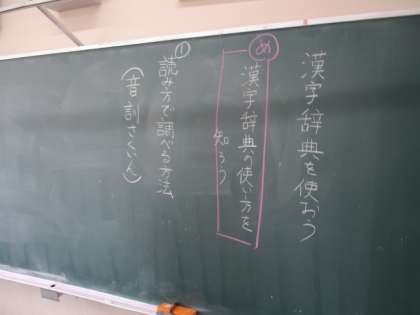 漢字辞典を使おう
め
漢字辞典の使い方を
知ろう
①
読み方で調べる方法
(音訓さくいん)